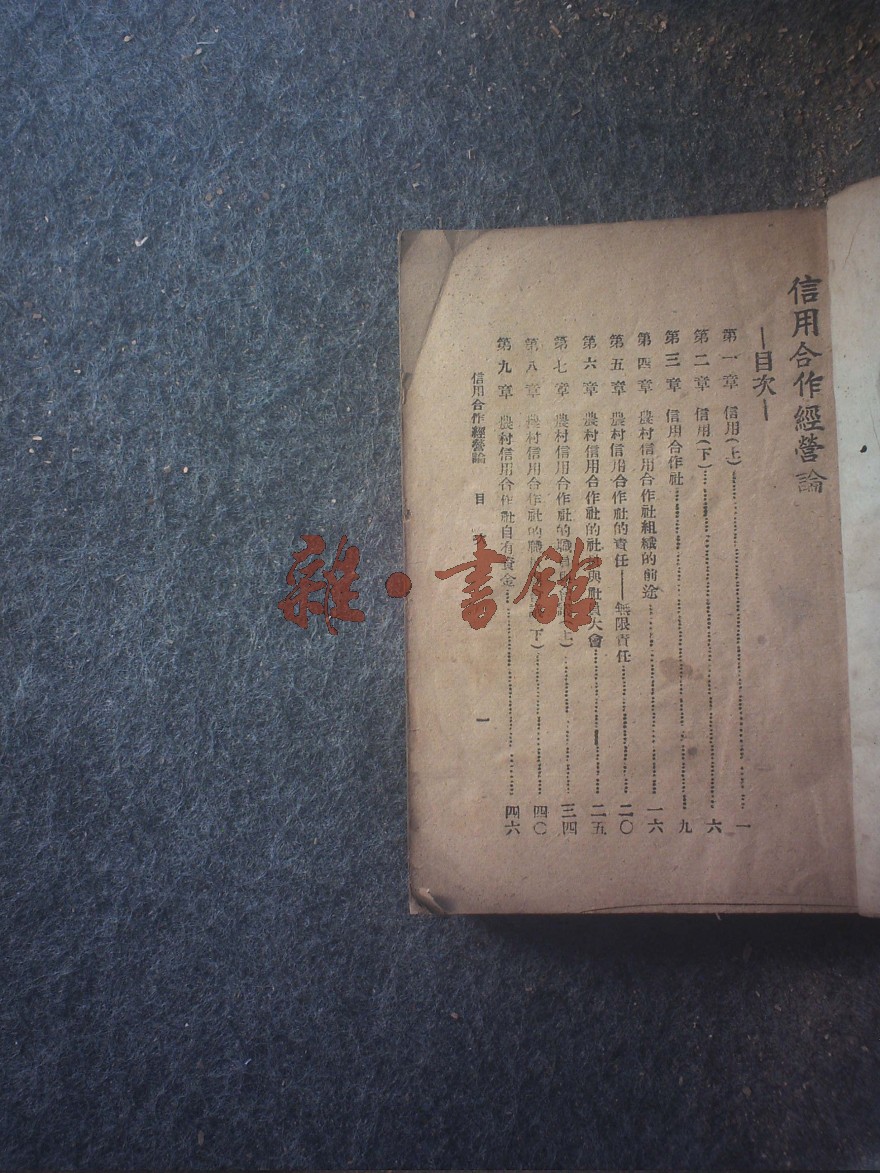 信用合作經營論
—目次—
第一章 信用(上)……一
第二章 信用(下)……六
第三章 信用合作社……九
第四章 農村信用合作社組織的前途……一六
第五章 農村信用合作社的責任——無限責任……二〇
第六章 農村信用合作社的社員與社員大會……二五
第七章 農村信用合作社的職員 (上)……三四
第八章 農村信用合作社的職 (下)……四〇
第九章 農村信用合作社自有資金……四六
信用合作經營論 目 一
雜·書館